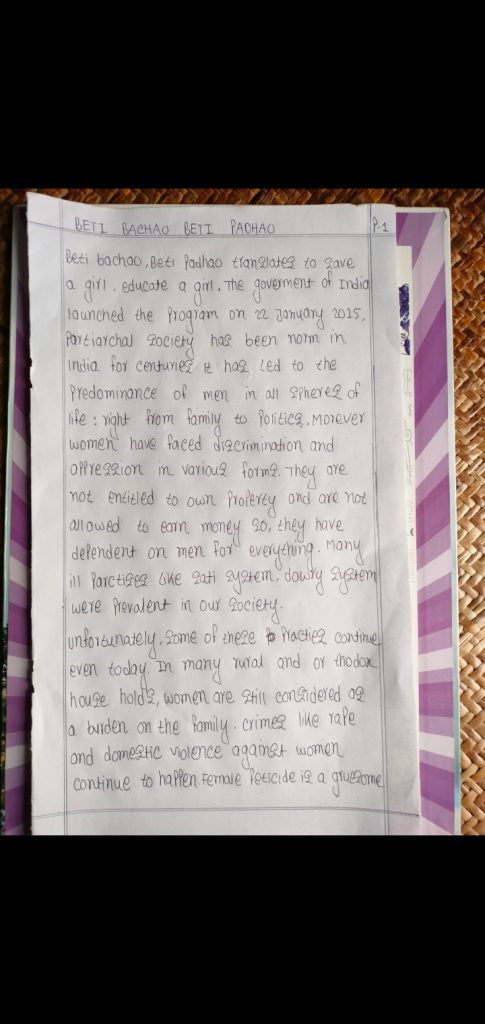 BETI BACHAO BETI PADHAO P-1
Beti bachao, Beti Padhao translates to save
a girl, educate a girl. The goverment of India
launched the Program on 22 January 2015,
Partiarchal society has been norm in
India for centuries it has Led to the
Predominance of men in all spheres of
life : right from family to Politics. Morever
women have faced discrimination and
oppression in various forms. They are
not entitled to own Property and are not
allowed to earn money. so, they have
dependent on men for everything. Many
ill Parctises like sati system, dowry system
were Prevalent in our society.
unfortunately, some of these Practies continue
even today. In many rural and or thodox
house holds, women are still considered as
a burden on the family. crimes like rape
and domestic violence against women
continue to happen. Female Feticide is a gruesome